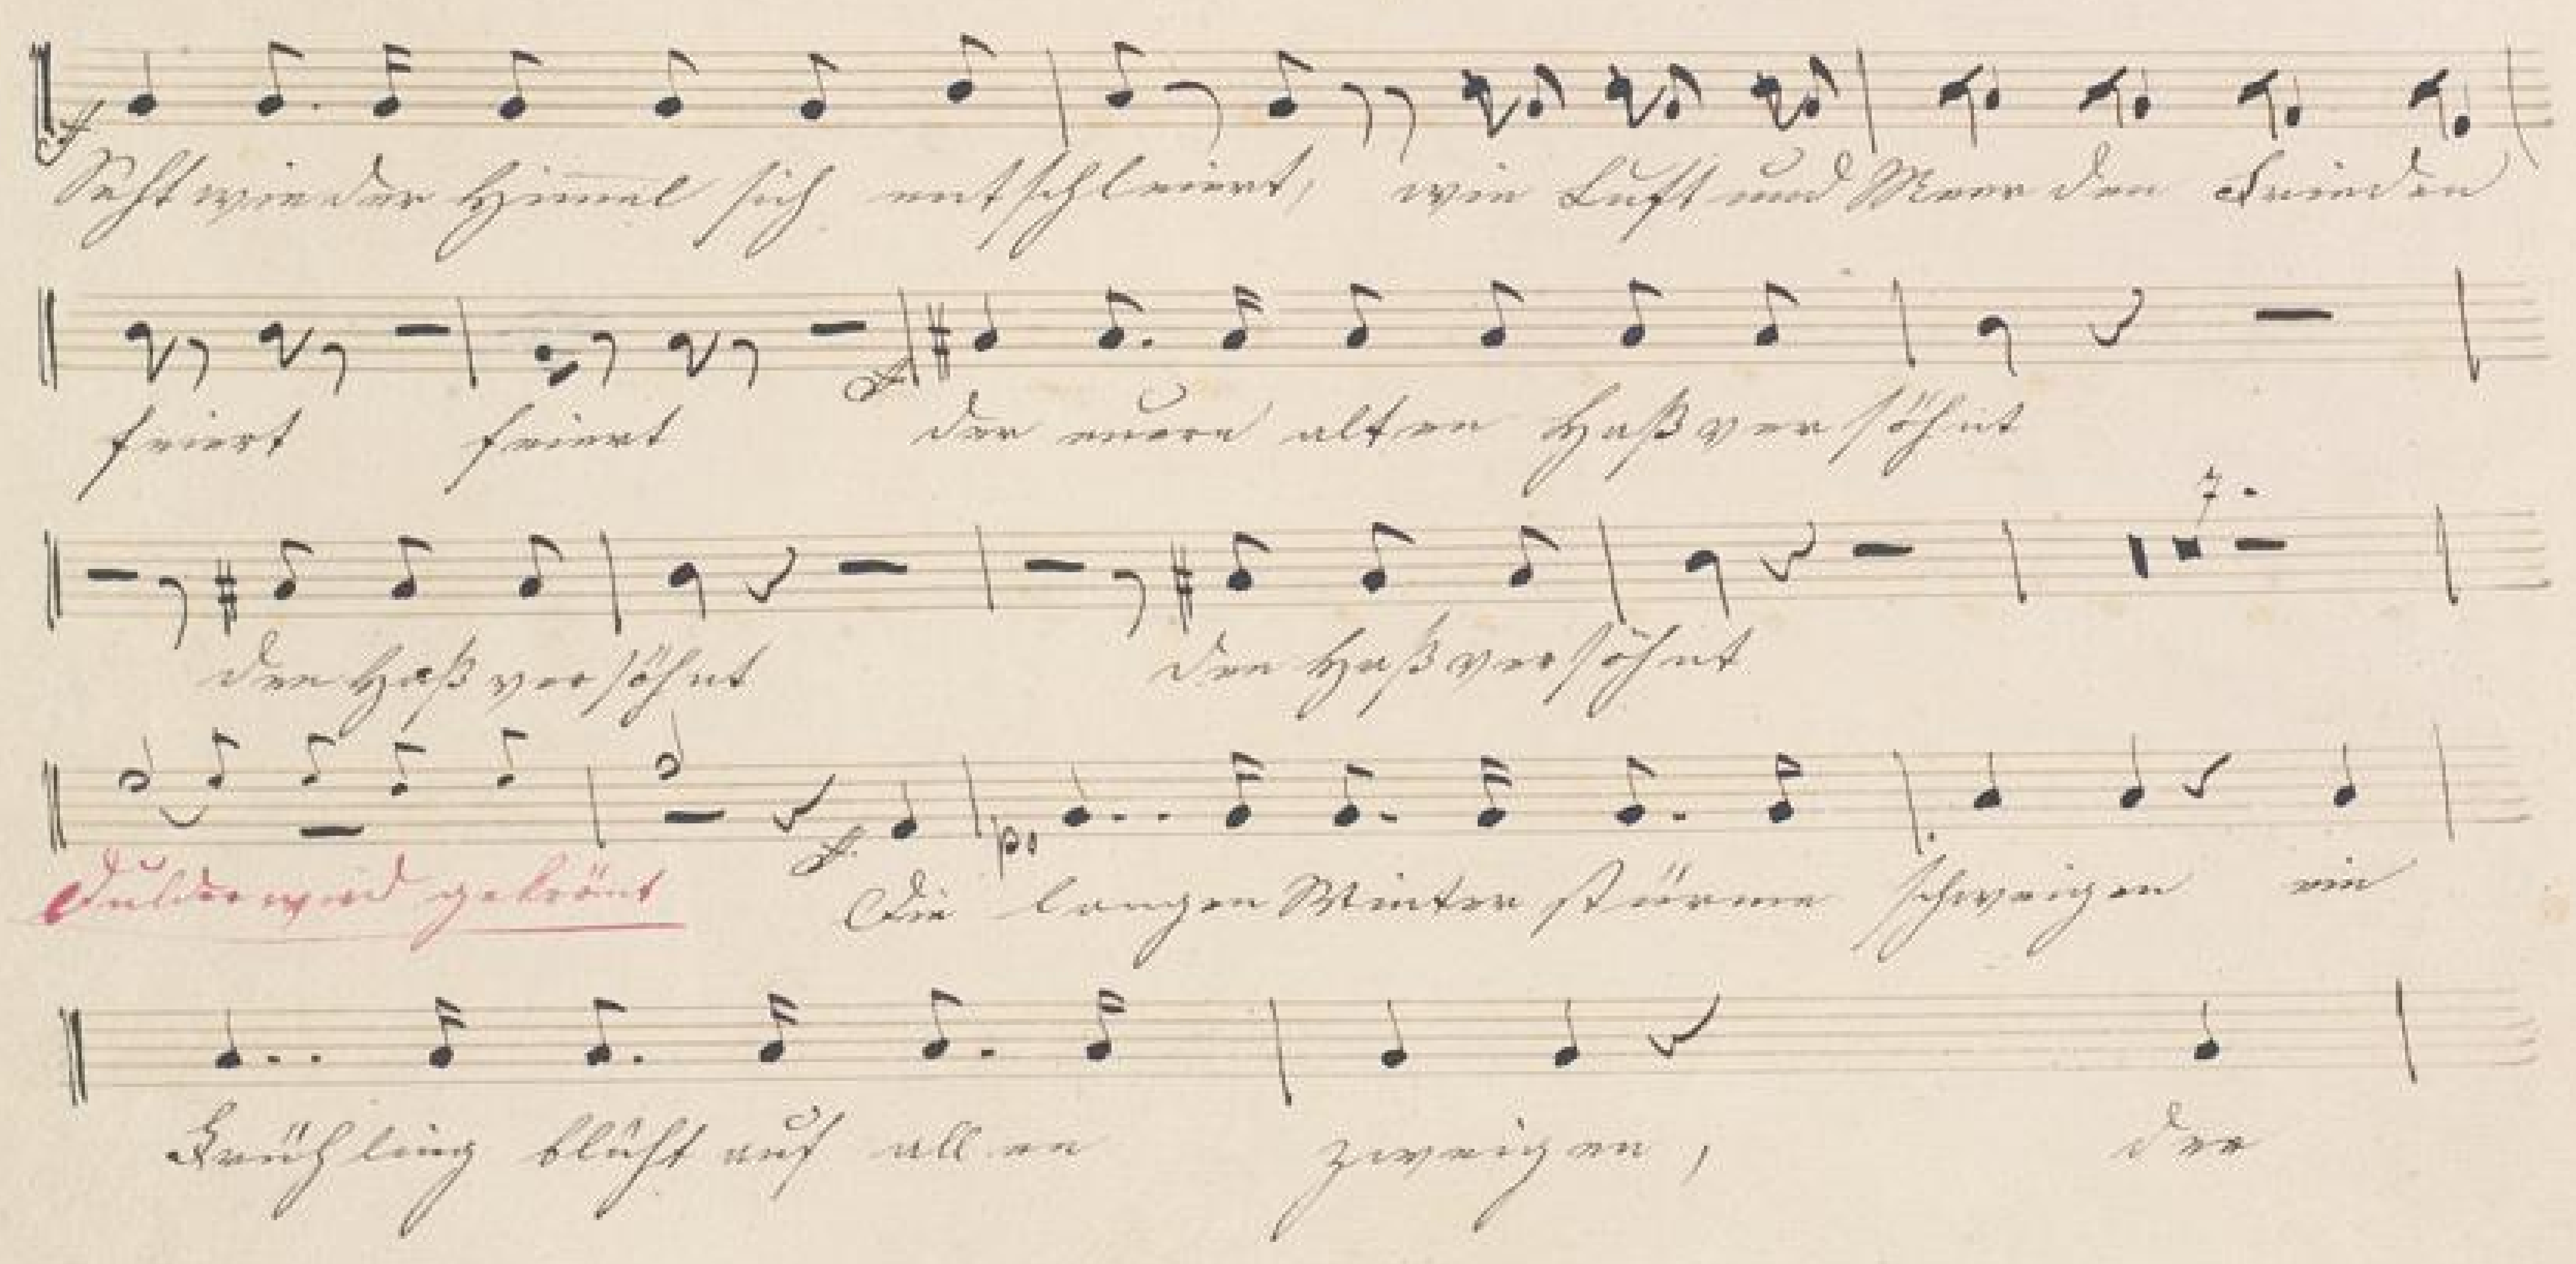 f
Seht wie der Himmel sich entschleiert, wie Luft und Meer den Frieden
feiert feiert der euern alten Haß versöhnt
f
7.
den Haß versöhnt den Haß versöhnt
Dulder wird gekrönt Die langen Winter stürme schweigen ein
f. p.
Frühling blüht auf allen zweigen, der